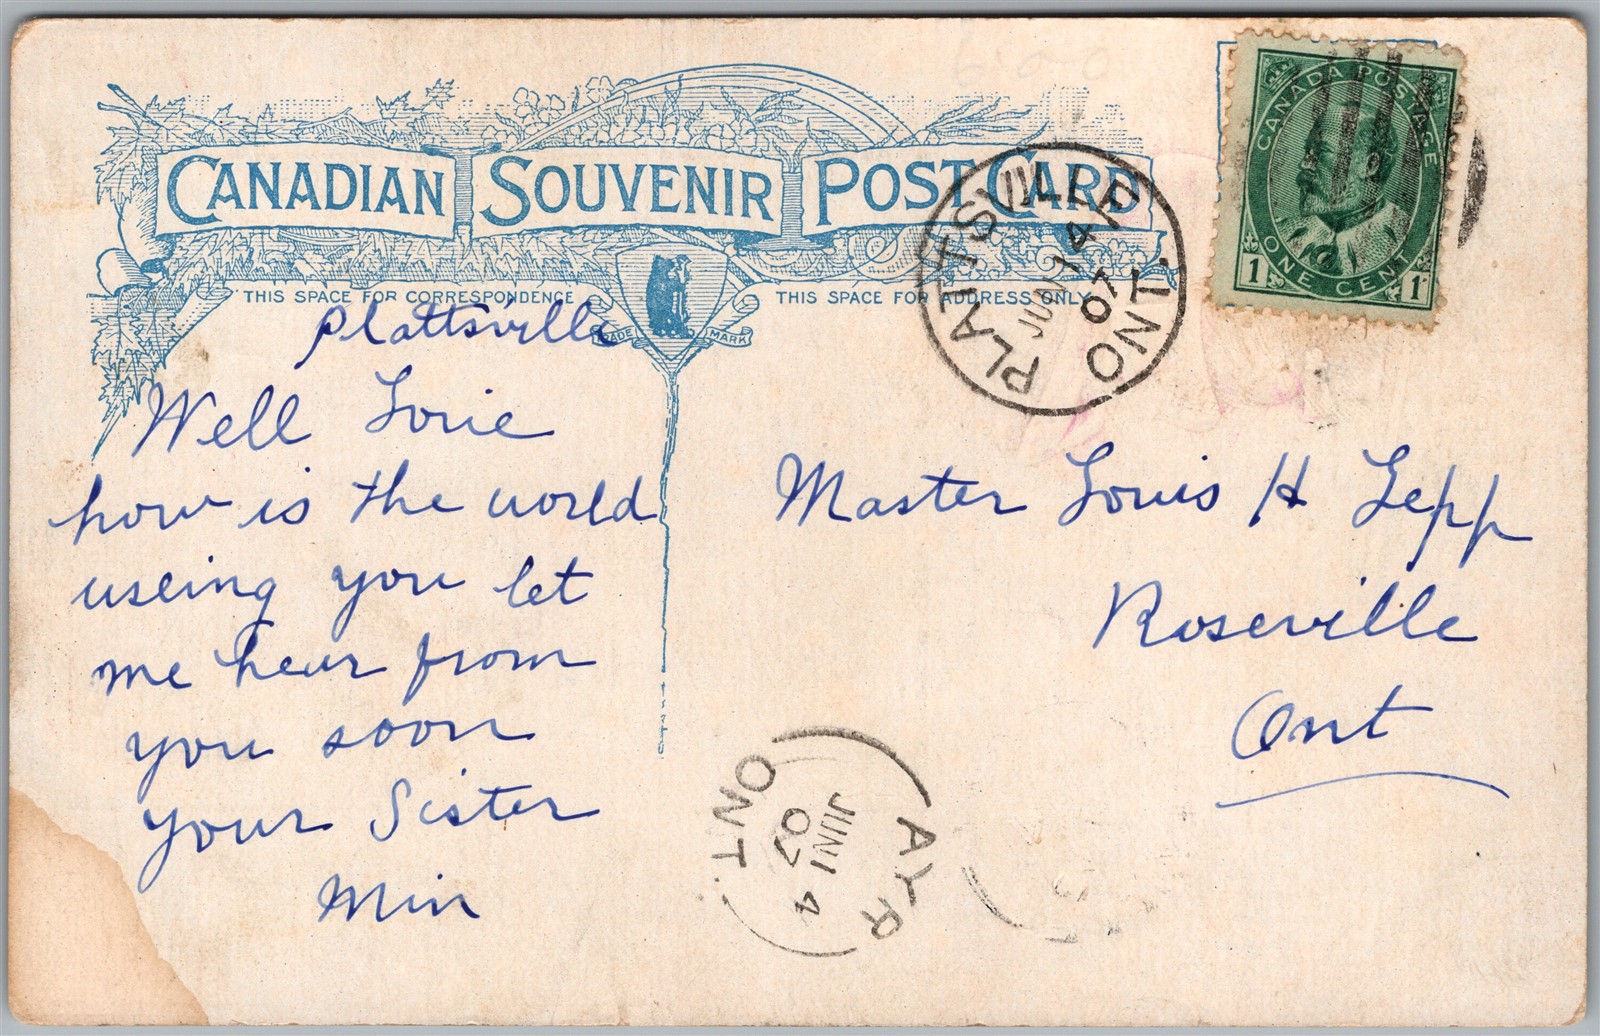 CANADIAN SOUVENIR POST CARD
THIS SPACE FOR CORRESPONDENCE
THIS SPACE FOR ADDRESS ONLY
TRADE MARK
CANADA POSTAGE
1 ONE CENT 1
PLATTSVILLE
JUN 14
07
ONT.
Plattsville
Well Louie
how is the world
useing you let
me hear from
you soon
your Sister
Min
Master Louis H Lepp
Roseville
Ont
AYR
JUN 14
07
ONT.